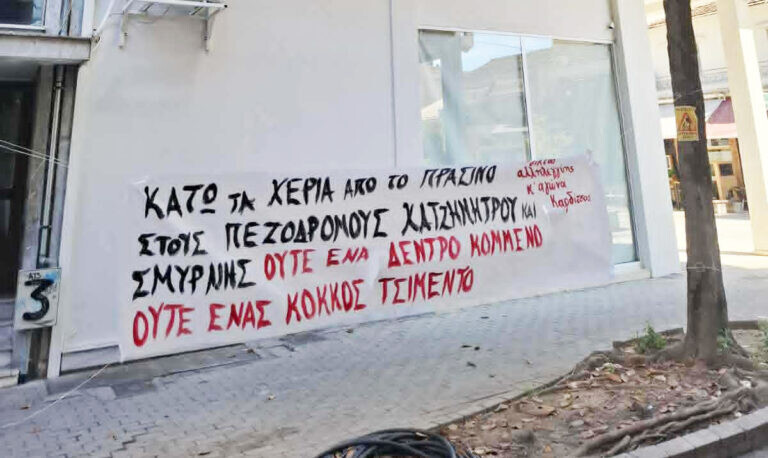 ΚΑΤΩ ΤΑ ΧΕΡΙΑ ΑΠΟ ΤΟ ΠΡΑΣΙΝΟ
ΣΤΟΥΣ ΠΕΖΟΔΡΟΜΟΥΣ ΧΑΤΖΗΜΗΤΡΟΥ ΚΑΙ
ΣΜΥΡΝΗΣ ΟΥΤΕ ΕΝΑ ΔΕΝΤΡΟ ΚΟΜΜΕΝΟ
ΟΥΤΕ ΕΝΑΣ ΚΟΚΚΟΣ ΤΣΙΜΕΝΤΟ
αλληλεγγύης
κ' αγώνα
Καρδίτσας
Α15
3